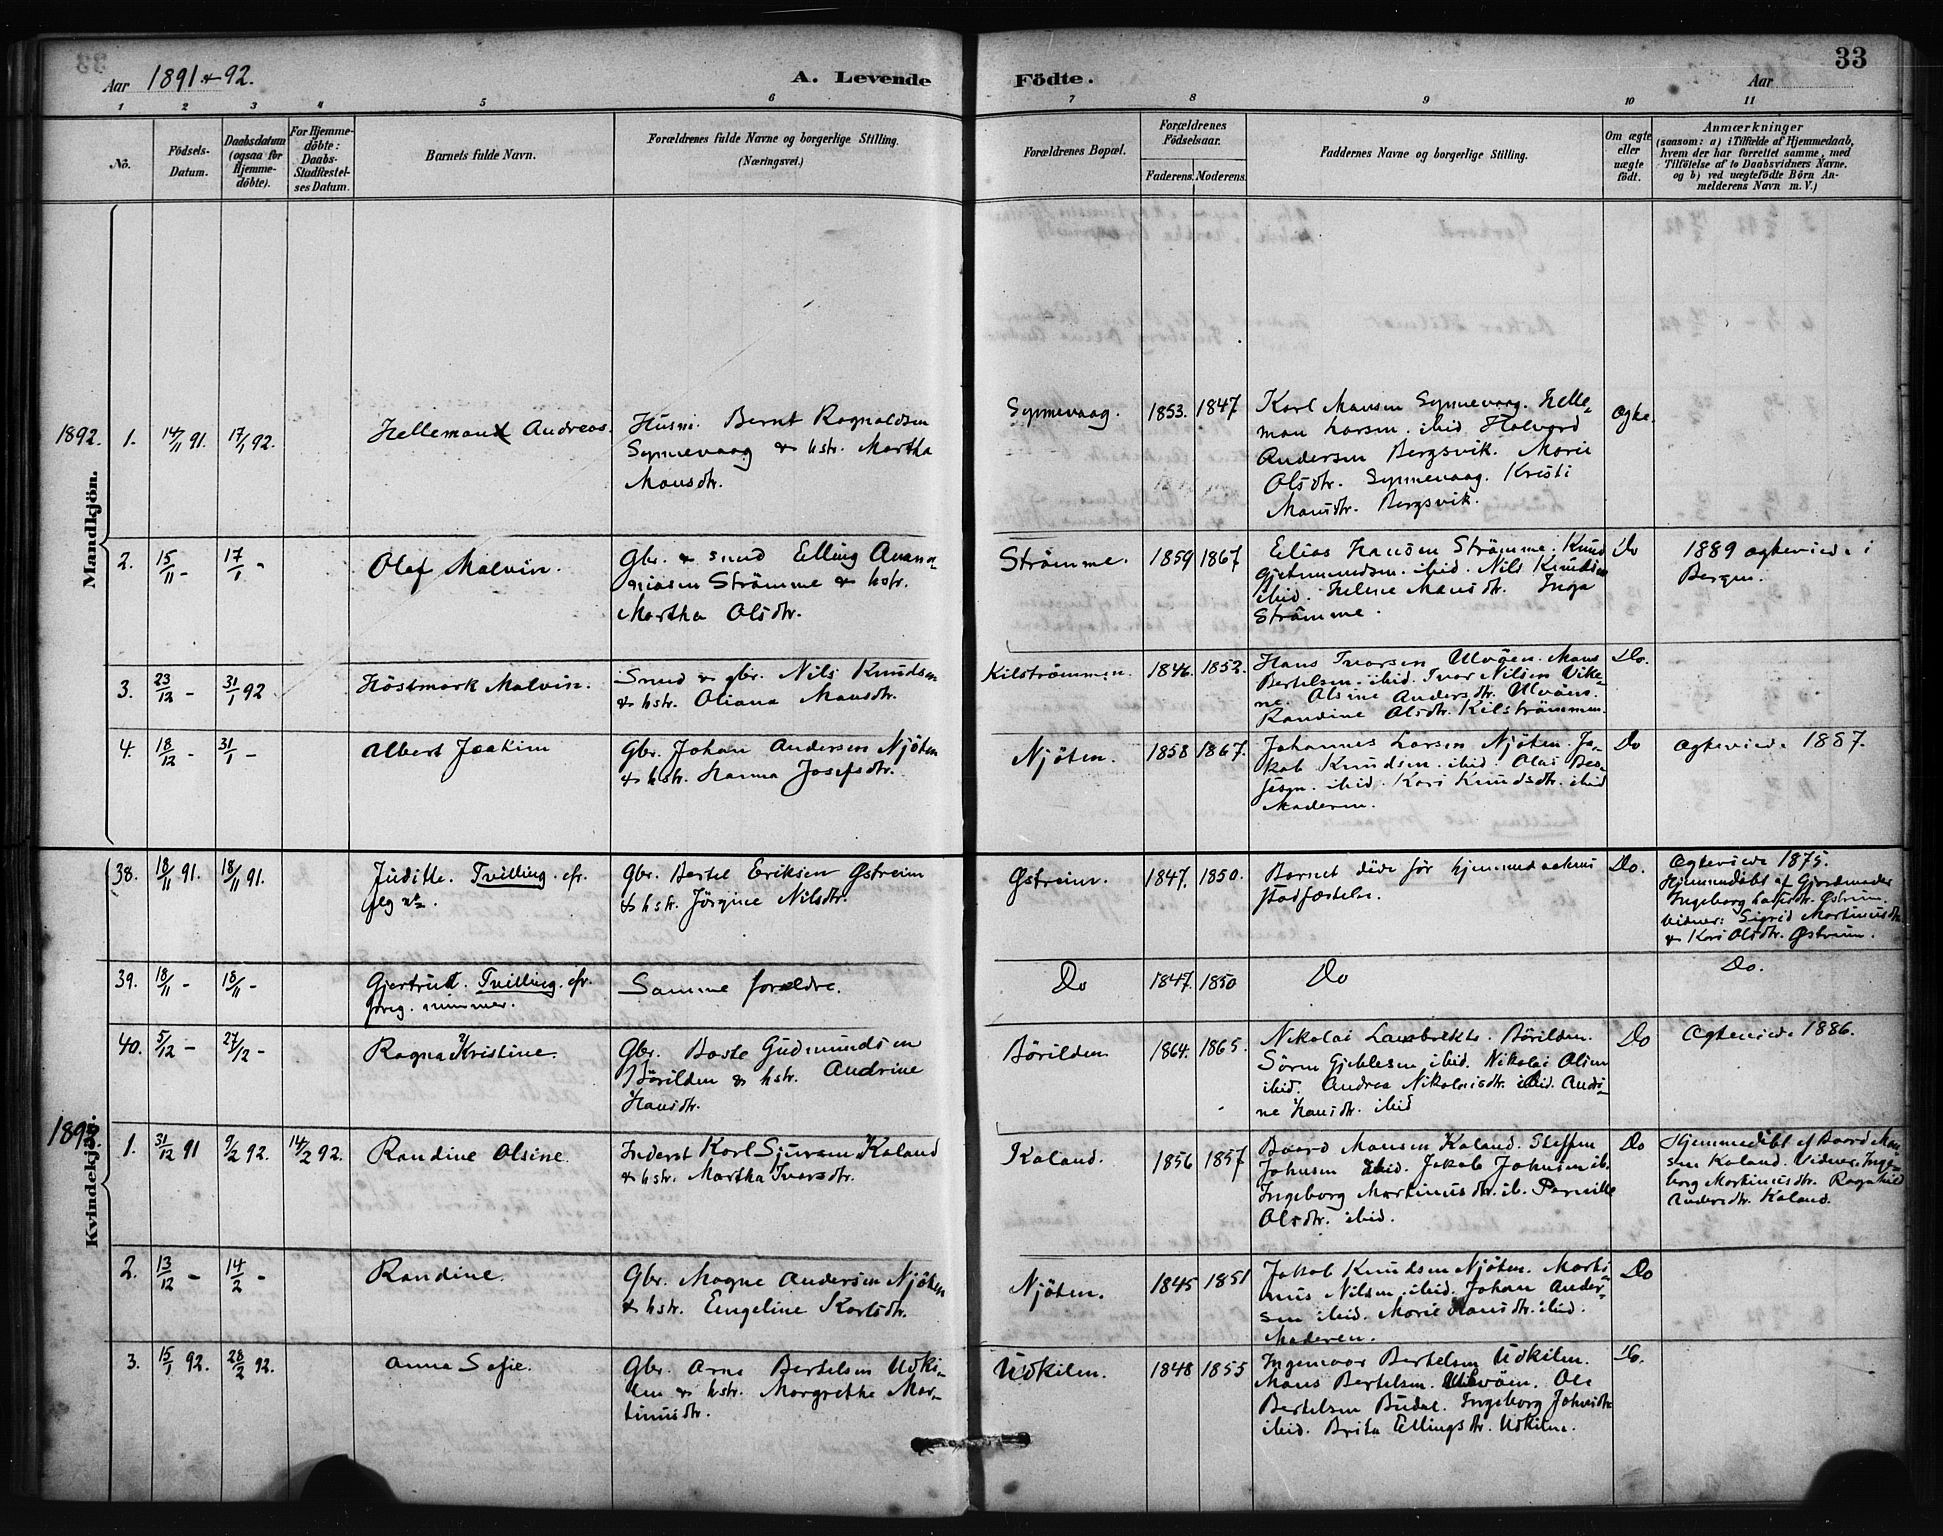 33
Aar 1891 & 92.
A. Levende
Födte.
Aar
1 2 3 4 5 6 7 8 9 10 11
No.
Födsels-
Datum.
Daabsdatum
(ogsaa for
Hjemme-
döbte).
For Hjemme-
döbte:
Daabs-
Stadfæstel-
ses Datum.
Barnets fulde Navn.
Forældrenes fulde Navne og borgerlige Stilling.
(Næringsvei.)
Forældrenes Bopæl.
Forældrenes
Födselsaar.
Faderens. Moderens.
Faddernes Navne og borgerlige Stilling.
Om ægte
eller
uægte
födt.
Anmærkninger
(saasom: a) i Tilfælde af Hjemmedaab,
hvem der har forrettet samme, med
Tilföielse af to Daabsvidners Navne,
og b) ved uægtefödte Börn An-
melderens Navn m. V.)
Mandkjön.
1892. 1. 14/11 91. 17/1 92.
Hellemann Andreas.
Husm. Bernt Ragnaldsen
Synnevaag & hstr. Martha
Mansdtr.
Synnevaag. 1853. 1847
Karl Mansen Synnevaag. Helle-
man Larsen. ibid Halvard
Andersen Bergsvik. Marie
Olsdtr. Synnevaag. Kristi
Mansdtr. Bergsvik.
Ægte.
2. 15/11 - 17/1 -
Olaf Malvin.
Gbr. & smed Elling Anana-
niasen Strömme & hstr.
Martha Olsdtr.
Strömme. 1859 1867
Elias Hansen Strömme. Knud
Gjetmundsen. ibid. Nils Knudsen
ibid. Helene Mansdtr. Inga
Strömme.
Do
1889 ægteviede i
Bergen.
3. 23/12 - 31/1 92
Höstmark Malvin.
Smed & gbr. Nils Knudsen
& hstr. Oliana Mansdtr.
Kilströmmen. 1846. 1852.
Hans Ivarsen Ulvöen. Mans
Bertelsen. ibid. Ivar Nilsen Vike-
ne. Alsine Andersdtr. Ulvöen.
Randine Olsdtr. Kilströmmen.
Do.
4. 18/12 - 31/1 -
Albert Joakim
Gbr. Johan Andersen Njöten
& hstr. Hanna Josefsdtr.
Njöten. 1858 1867.
Johannes Larsen Njöten. Ja-
kob Knudsen. ibid. Olai
ibid. Kari Knudsdtr. ibid
Moderen.
Do
Ægteviede 1887.
Kvindekjön.
38. 18/11 91. 18/11 91.
Juditte. Tvilling. cfr.
flg nr.
Gbr. Bertel Eriksen Østreim
& hstr. Jörgine Nilsdtr.
Østreim. 1847. 1850.
Barnet döde för hjemmedaabens
stadfæstelse.
Do.
Ægteviede 1875.
Hjemmedöbt af Gjordmoder
Ingeborg Østreim.
Vidner: Sigrid Martinusdtr.
& Kari Olsdtr. Østreim.
39. 18/11 - 18/11 -
Gjertrud. Tvilling. cfr.
foreg. nummer.
Samme forældre.
Do 1847. 1850 Do Do.
40. 5/12 - 27/12 -
Ragna Kristine.
Gbr. Baste Gudmundsen
Börilden & hstr. Andrine
Hansdtr.
Börilden 1864. 1865.
Nikolai Lambrekts. Börilden.
Sören Gjeblesen ibid. Nikolai Olsen
ibid. Andrea Nikolaisdtr. ibid. Andri-
ne Hansdtr. ibid
Do
Ægteviede 1886.
1892. 1. 31/12 91 9/2 92. 14/2 92.
Randine Olsine.
Inderst Karl Sjursen Kaland
& hstr. Martha Ivarsdtr.
Kaland. 1856 1857
Baard Mansen Kaland. Steffen
Johnsen ibid. Jakob Johnsen ib.
Ingeborg Martinusdtr. ib. Pernille
Olsdtr. ibid.
Do
Hjemmedöbt af Baard Man-
sen Kaland. Vidner: Inge-
borg Martinusdtr. Ragnhild
Andersdtr. Kaland.
2. 13/12 - 14/2 -
Randine.
Gbr. Magne Andersen Njöten
& hstr. Engeline Karlsdtr.
Njöten. 1845 1851
Jakob Knudsen Njöten. Marti-
nus Nilsen. ibid. Johan Ander-
sen ibid. Marie Hansdtr. ibid.
Moderen.
Do
3. 15/1 92. 28/2 92.
Anna Sofie.
Gbr. Arne Bertelsen Udki-
len & hstr. Margrethe Mar-
tinusdtr.
Udkilen. 1848 1855
Ingemoor Bertelsen Udkilen.
Mans Bertelsen. Ulvöen. Ole
Bertelsen Budal. Ingeborg Johnsdtr
ibid. Brita Ellingsdtr. Udkilen.
Do.